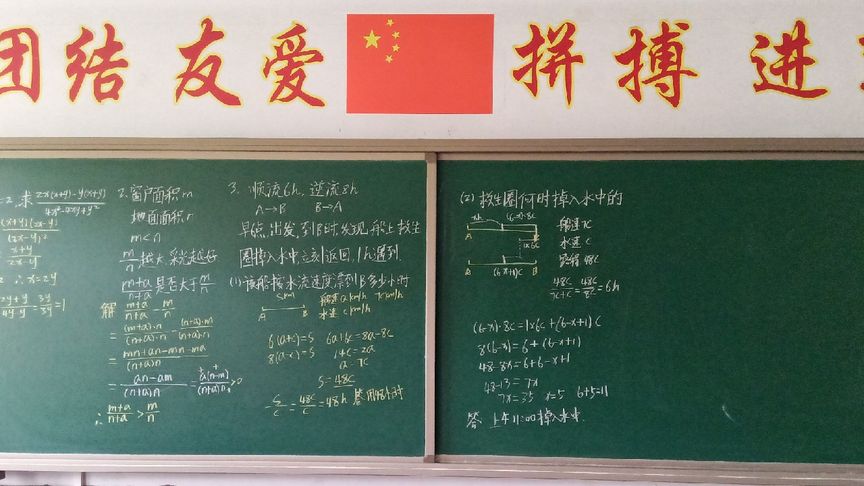 团结友爱 拼搏进
求 2x(x+y)-y(x+y) / 4x²-4xy+y²
(x+y)(2x-y) / (2x-y)²
x+y / 2x-y
∴x=2y
2y+y / 4y-y = 3y/3y =1
2. 窗户面积 m
地面面积 n
m<n
m/n 越大 采光越好
m+a/n+a 是否大于 m/n
解 m+a/n+a - m/n
= (m+a)·n/(n+a)·n - (n+a)·m/(n+a)·n
= mn+an-mn-ma/(n+a)n
= an-am/(n+a)n = a(n-m)/(n+a)n >0
∴ m+a/n+a > m/n
3. 顺流6h, 逆流8h
A→B B→A
圈掉入水中,立刻返回, 1h遇到.
(1) 该船按水流速度漂到B多少小时
Skm
A B
船速 a km/h 7c km/h
水速 c km/h
6(a+c)=S 6a+6c=8a-8c
8(a-c)=S 14c=2a
a=7c
S=48c
S/c = 48c/c =48h 答 用48小时
(2) 救生圈何时掉入水中的
(6-x)·8c
船速 7c
A B
水速 c
路程 48c
A B
(6-x+1)c
48c/7c+c = 48c/8c =6h
(6-x)·8c=1×6c+(6-x+1)c
8(6-x)=6+(6-x+1)
48-8x=6+6-x+1
48-13=7x
7x=35 x=5 6+5=11
答 上午11:00掉入水中.